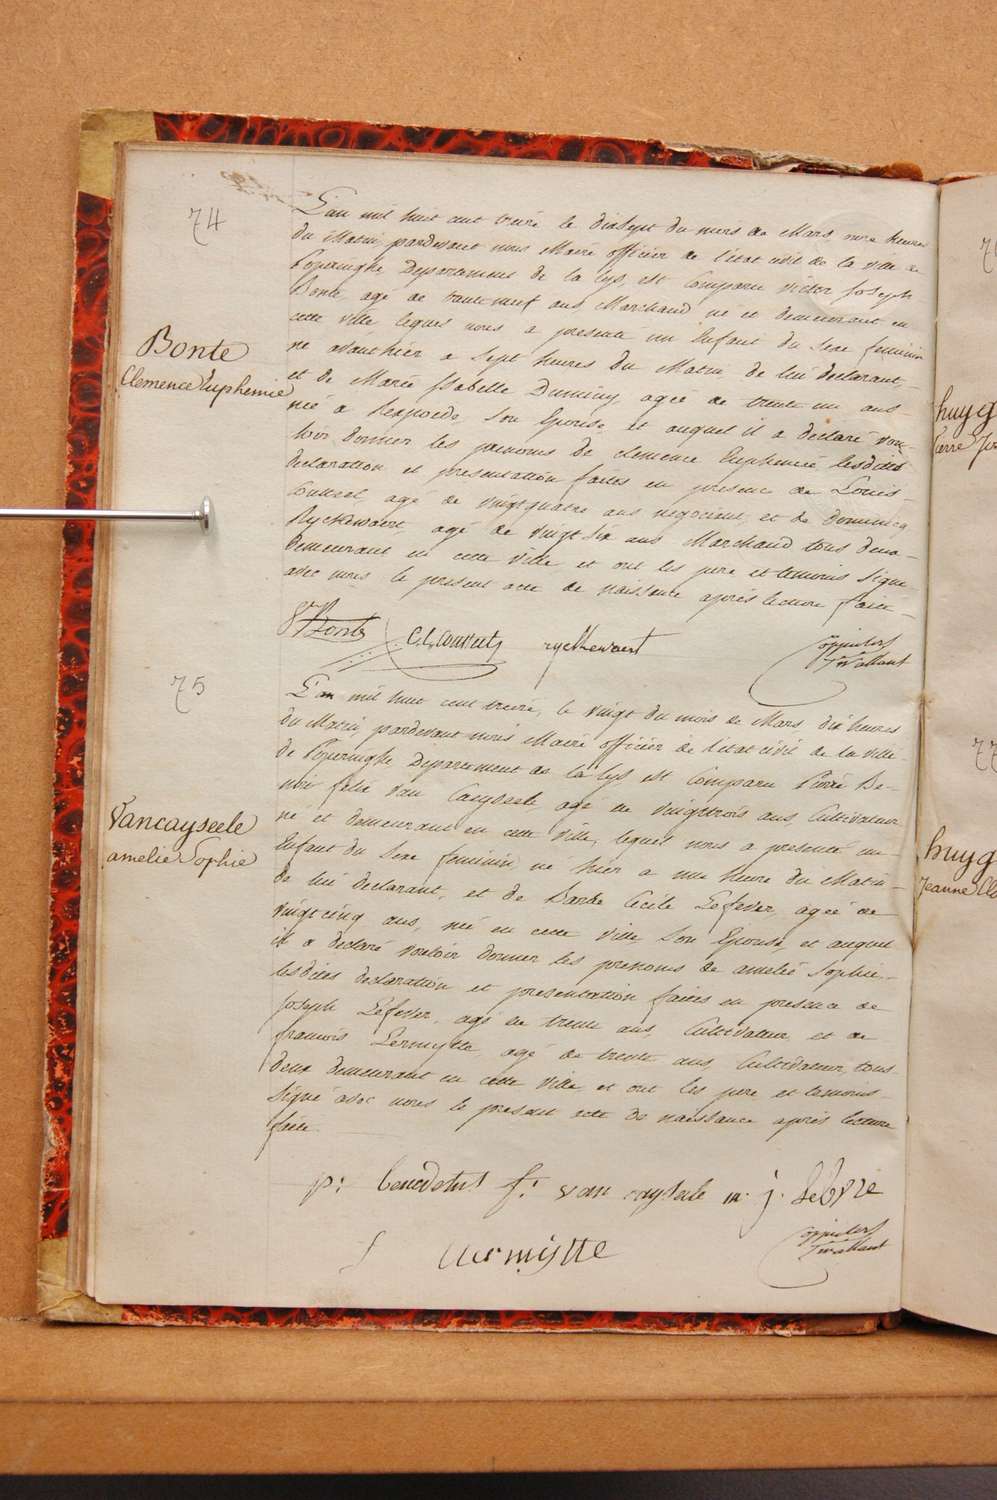 74
Bonte
Clemence Euphemie
L'an mil huit cent treize le dixsept du mois de Mars onze heures
du Matin pardevant nous Maire officier de l'état civil de la ville de
Poperinghe Departement de la Lys, est Comparu Victor Joseph
Bonte agé de trente neuf ans Marchand né et demeurant en
cette ville lequel nous a presenté un Enfant du Sexe feminin
né avanthier a Sept heures du Matin de lui declarant,
et de Marie Isabelle Duminy agée de trente un ans
née à Rexpoede, Son Epouse et auquel il a declaré vou-
loir donner les prenoms de Clemence Euphemie lesdites
declaration et presentation faites en presence de Louis
agé de vingtquatre ans negociant, et de Dominicq
Ryckewaert, agé de vingt Six ans Marchand tous deux
demeurant en cette ville et ont les pere et temoins Signé
avec nous le present acte de naissance après lecture faite
Bonte C. L. ryckewaert
75
Vancayseele
amelie Sophie
L'an mil huit cent treize, le vingt du mois de Mars dix heures
du Matin pardevant nous Maire officier de l'état civil de la ville
de Poperinghe Departement de la Lys est Comparu Pierre Be-
noit felix Van Cayseele agé de vingttrois ans, Cultivateur
né et demeurant en cette ville, lequel nous a presenté un
Enfant du Sexe feminin né hier a une heure du Matin
de lui declarant, et de Barbe Cécile Lefever, agée de
vingtcinq ans, née en cette ville Son Epouse, et auquel
il a declaré vouloir donner les prenoms de amelie Sophie
lesdites declaration et presentation faites en presence de
Joseph Lefever, agé de trente ans, Cultivateur et de
francois Lermytte agé de trente ans, Cultivateur, tous
deux demeurant en cette ville et ont les pere et temoins
Signé avec nous le present acte de naissance après lecture
faite.
p: benedictus f: van cayseele j.
77
huyg
Jeanne